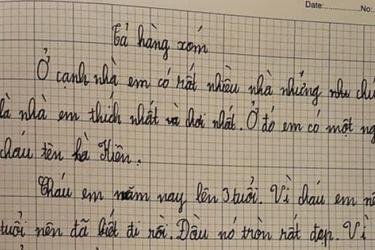 Date: No:
Tả hàng xóm
Ở cạnh nhà em có rất nhiều nhà nhưng như chú
là nhà em thích nhất và chơi nhất. Ở đó em có một ng
cháu tên hà Hiên.
Cháu em năm nay lên 3 tuổi. Vì cháu em
tuổi nên đã biết đi rồi. Đầu nó tròn rất đẹp. Vì